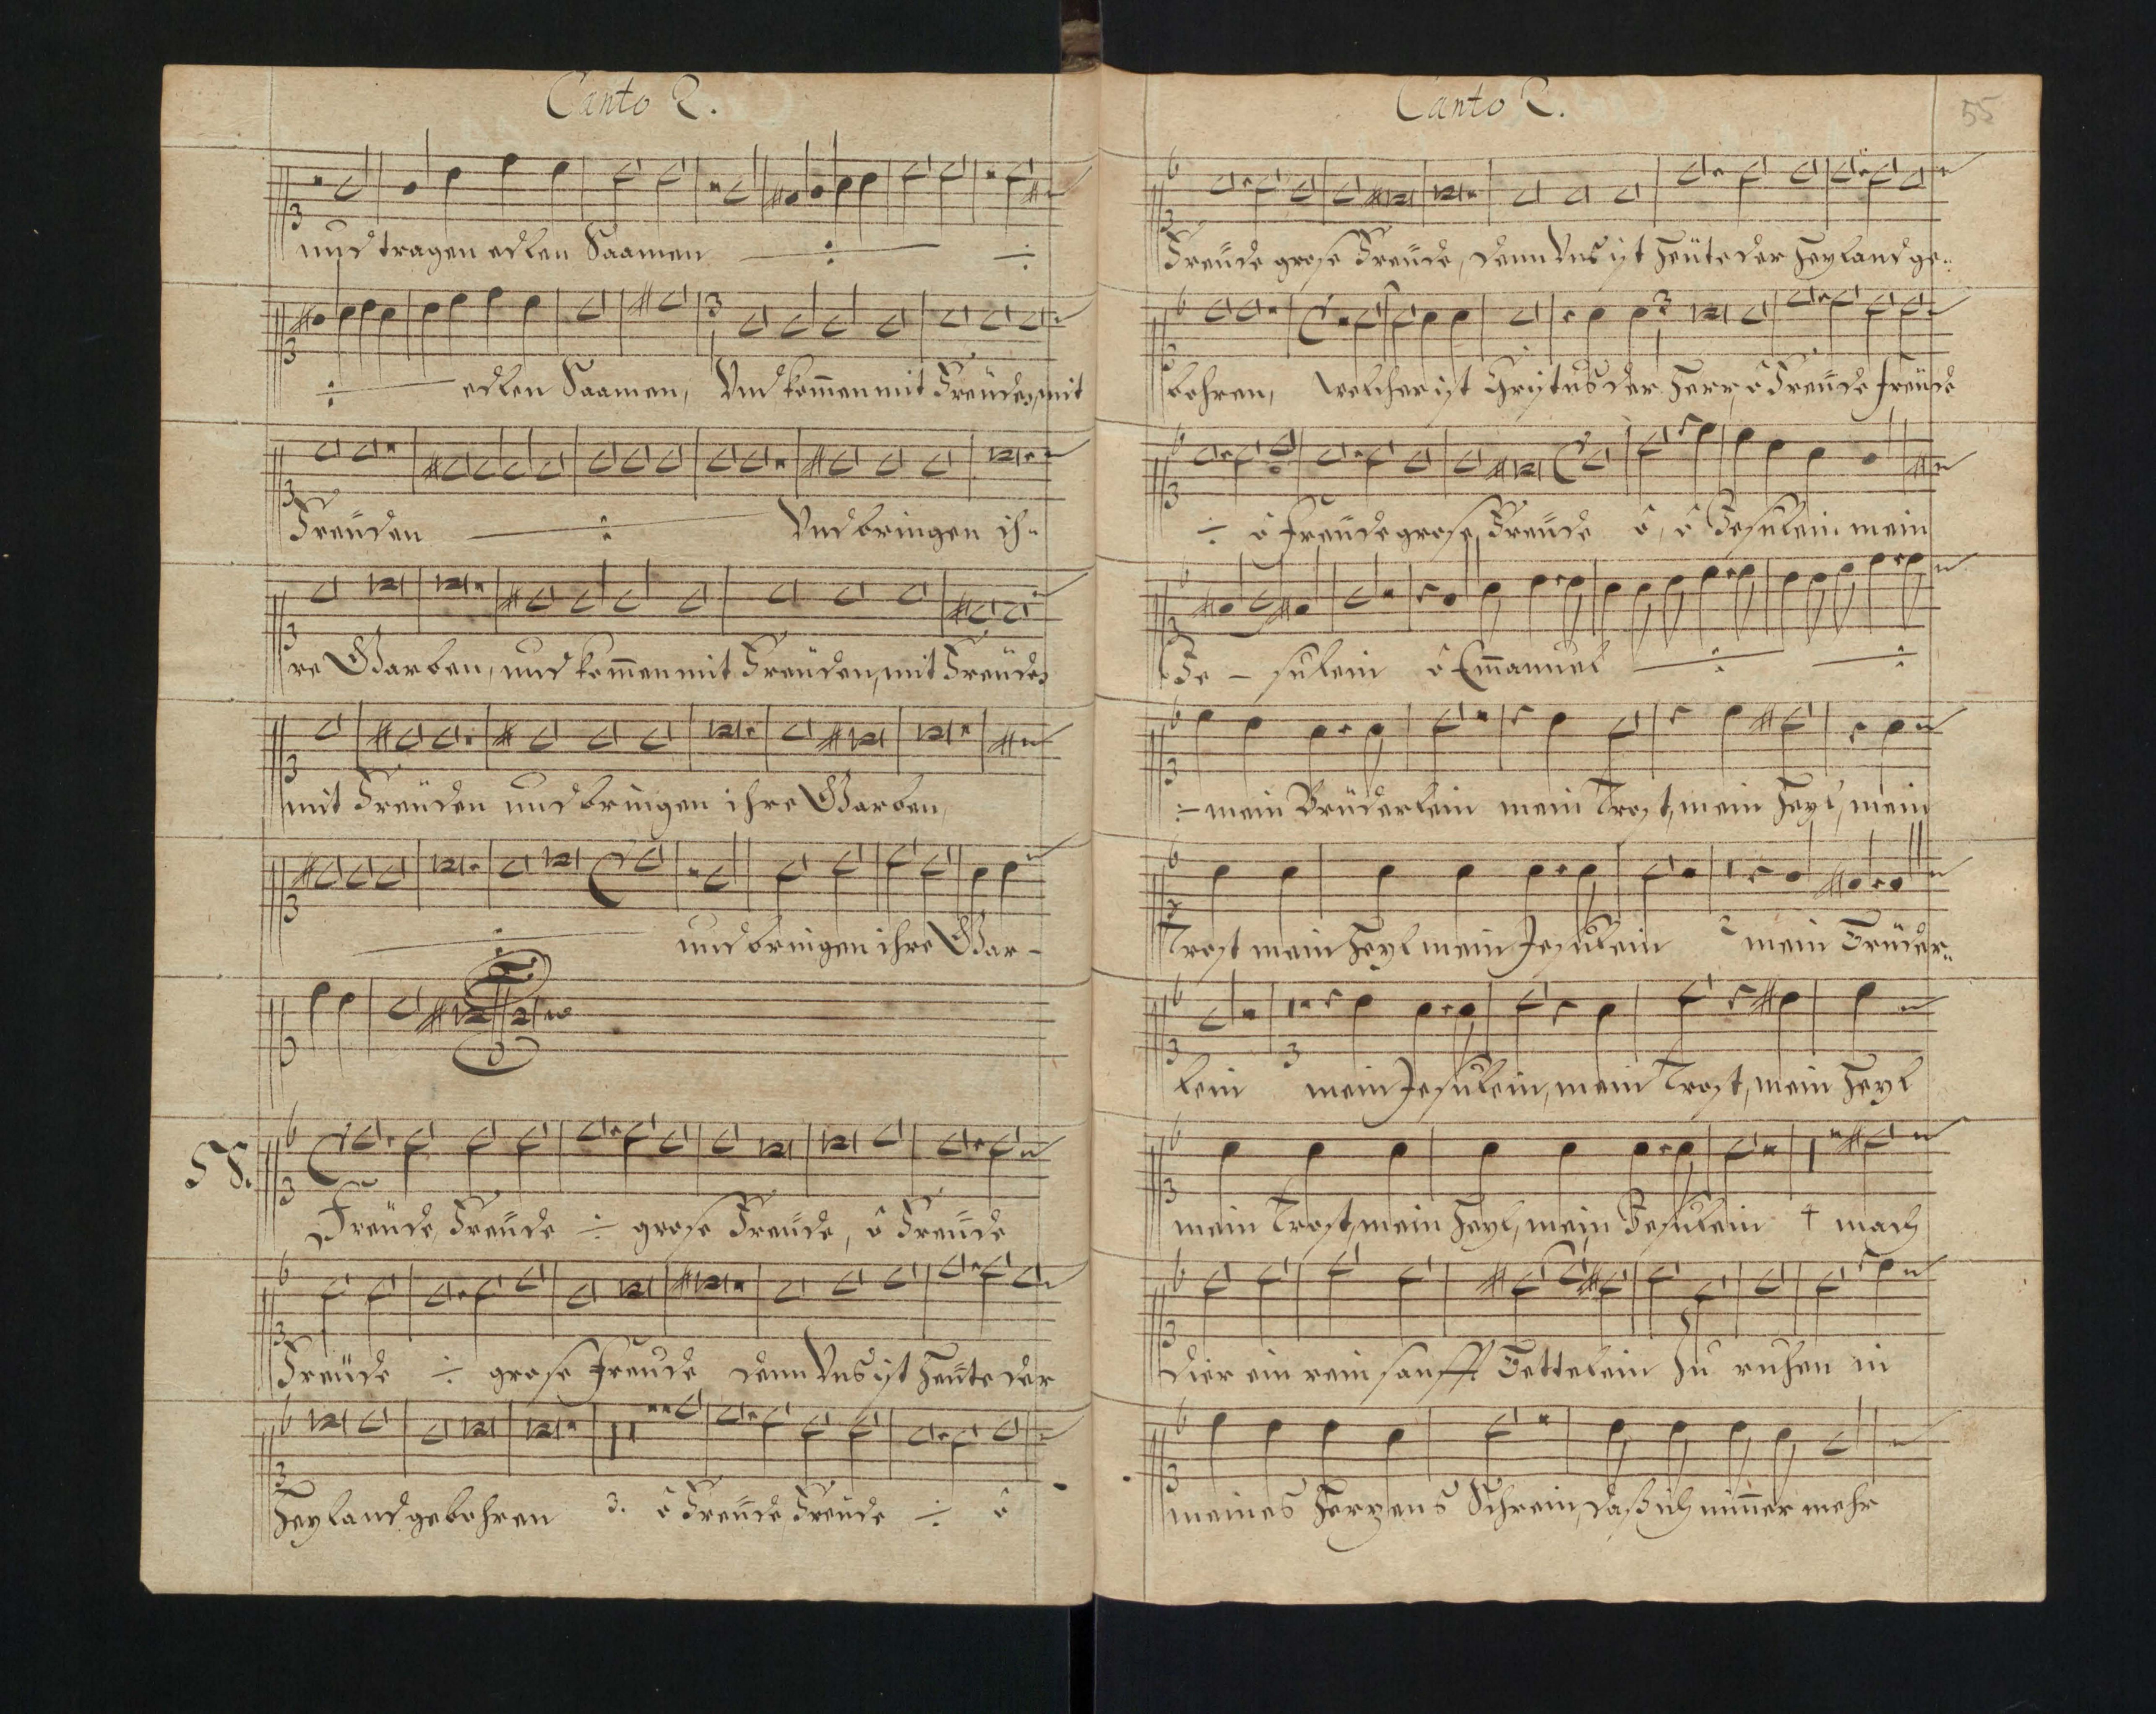 Canto 2.
und tragen edlen Saamen ÷ ÷
÷ edlen Saamen, Und kom̄en mit Freüden, mit
Freüden ÷ Und bringen ih-
re Garben, und kom̄en mit Freüden, mit Freüden
mit Freüden und bringen ihre Garben,
÷ und bringen ihre Gar-
58.
Freüde, Freüde ÷ grose Freüde, ô Freüde
Freüde ÷ grose Freude denn Uns ist Heüte der
Heyland gebohren 3. ô Freüde Freüde ÷ ô
Canto 2.
55
Freüde grose Freüde, denn Uns ist Heüte der Heyland ge-
bohren, welcher ist Christus der Herr, ô Freüde Freüde
÷ ô Freüde grose Freüde ô, ô Jesulein mein
Je - sulein ô Em̄anuel ÷ ÷
÷ mein Brüderlein mein Trost, mein Heyl, mein
Trost mein Heyl mein Jesulein 2 mein Brüder-
lein mein Jesulein, mein Trost, mein Heyl
mein Trost, mein Heyl, mein Jesulein 4 mach
dier ein rein sanfft Bettelein Zu ruhen in
meines Herzens Schrein, daß ich nim̄er mehr